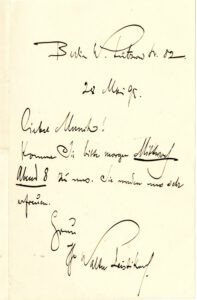 Berlin W. Lützow str. 82
28 Mai 95.
Lieber Munch!
Komme Sie bitte morgen Mittwoch
Abend 8 zu uns. Sie würden uns sehr
erfreuen.
Gruss
Ihr Walter Leistikow